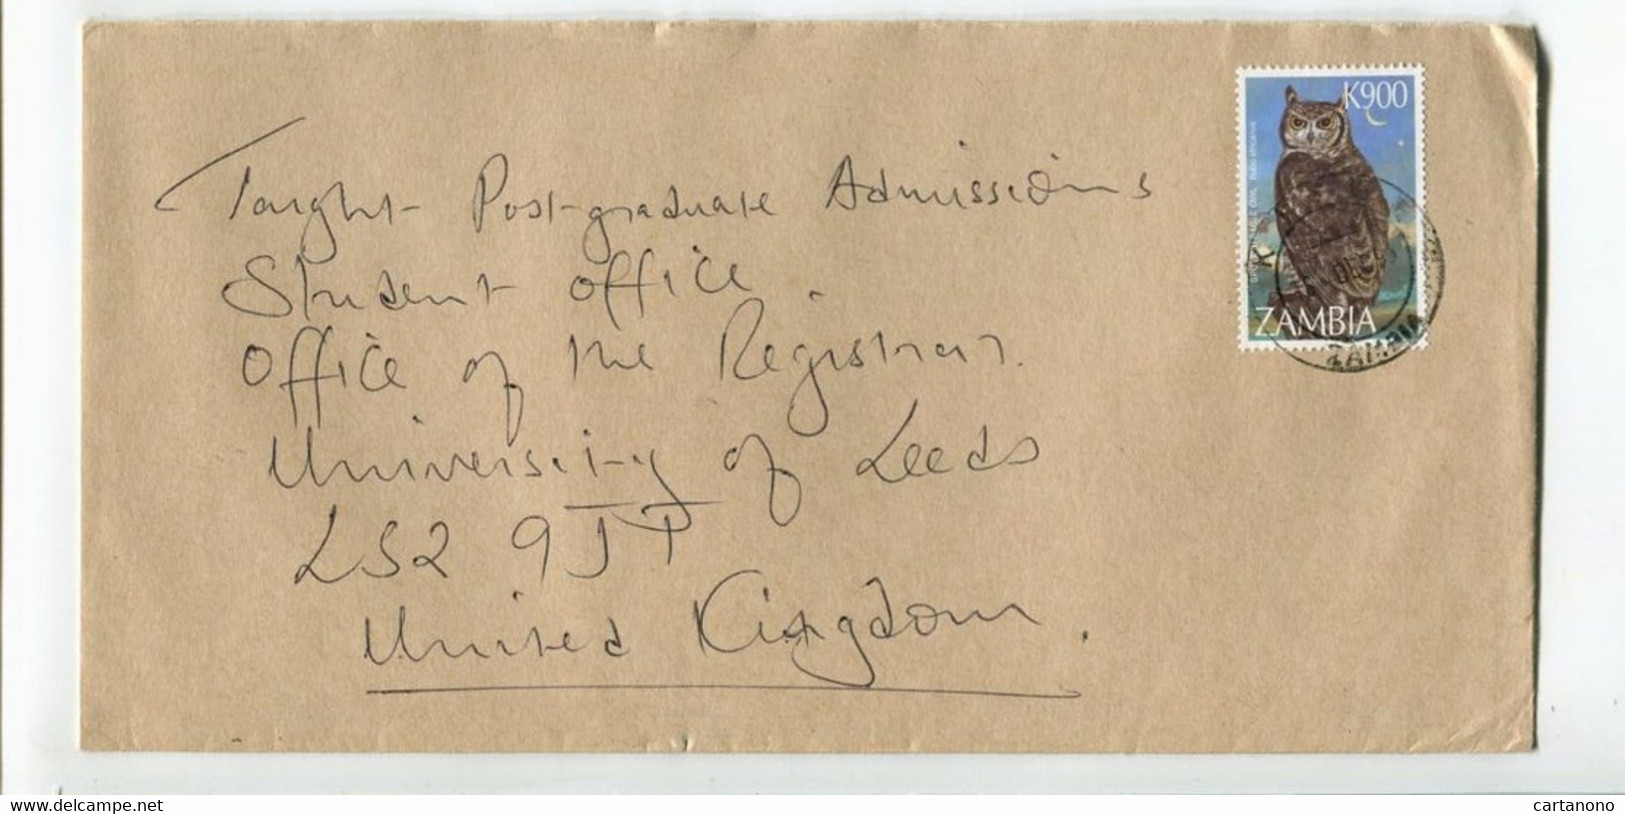 K900
Bubo africanus
ZAMBIA
K
ZAMBIA
Taught Post-graduate Admissions
Student office
Office of the Registrar.
University of Leeds
LS2 9JT
United Kingdom.
www.delcampe.net
cartanono